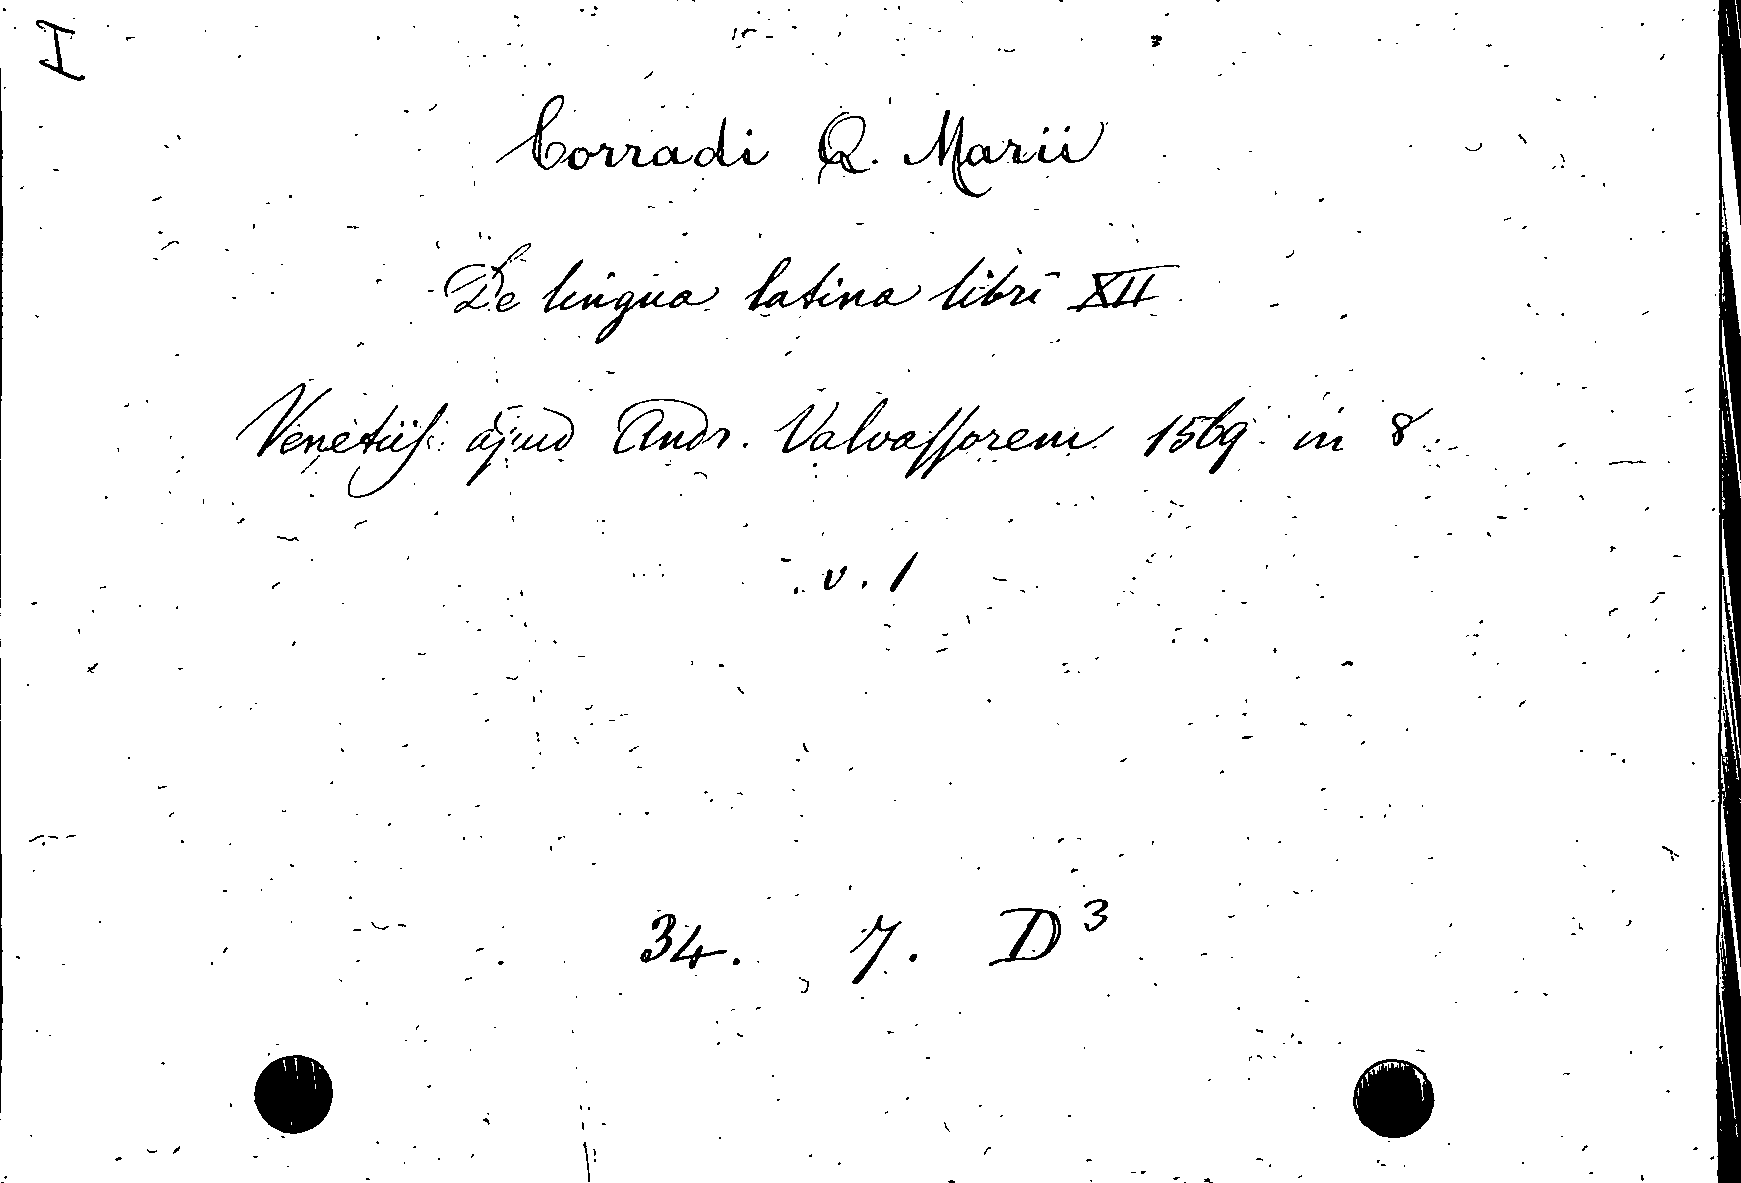 I
Corradi Q. Marii
De lingua latina libri XII
Venetiis apud Andr. Valvassorem 1569 in 8
v. 1
34. 7. D³